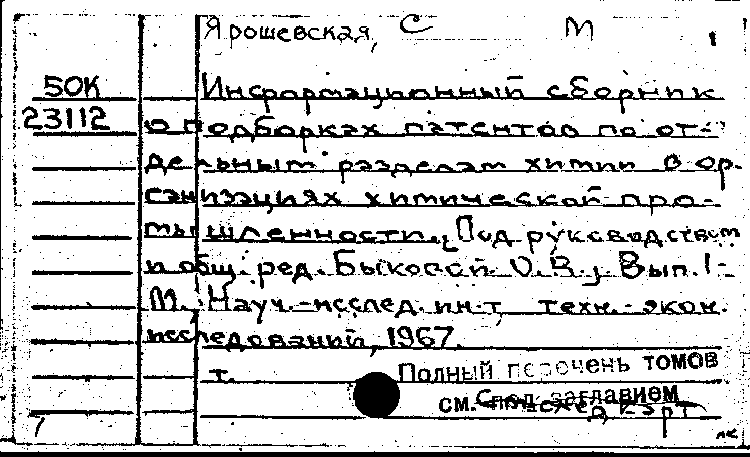 Ярошевская, С М 1
50К
23112
Информационный сборник
о подборках патентов по от-
дельным разделам химии в ор-
ганизациях химической про-
мышленности. Под руководством
и общ. ред. Быковой О.В., Вып. 1-
М., Науч.-исслед. ин-т техн.-экон.
исследований, 1967.
т.
Полный перечень томов
см. под заглавием
карт